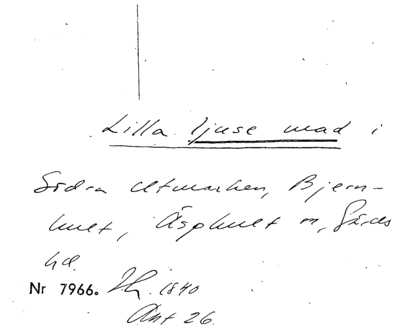 Lilla ljuse mad i
Södra Utmarken, Bjern-
hult, Äsphult s, Gärds
hd.
Nr 7966. 1840
Akt 26